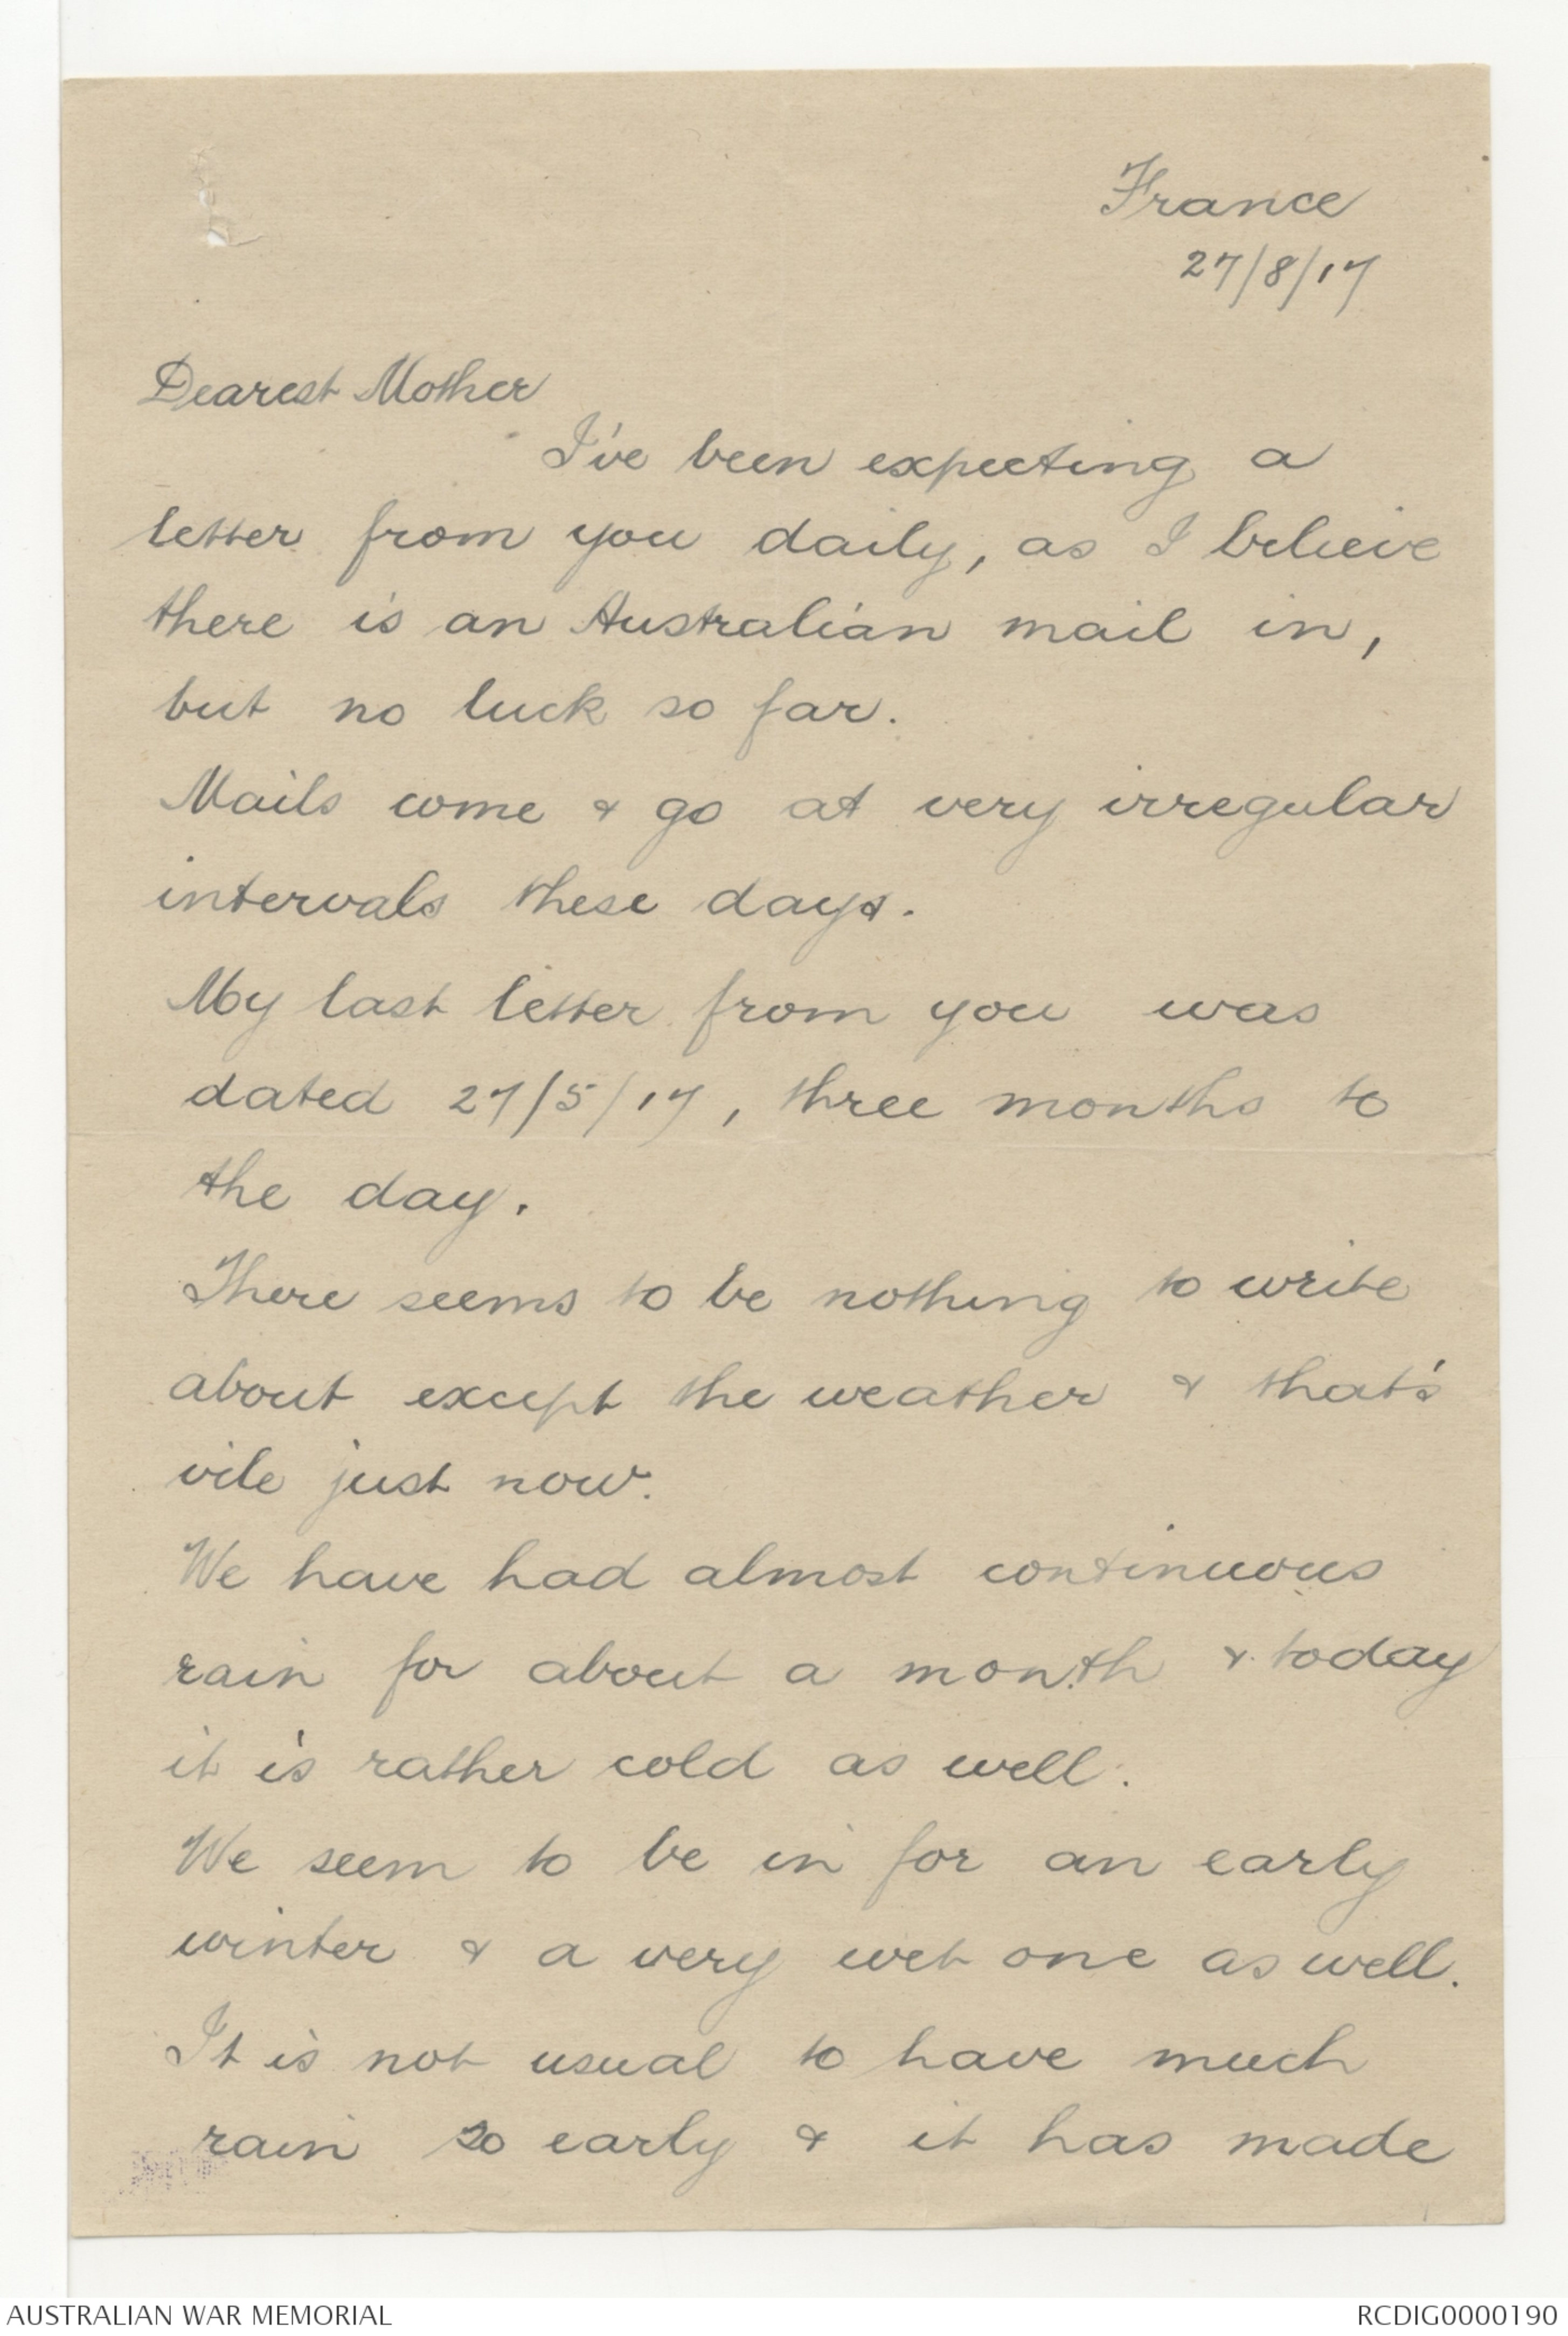 France
27/8/17
Dearest Mother
I've been expecting a
letter from you daily, as I believe
there is an Australian mail in,
but no luck so far.
Mails come & go at very irregular
intervals these days.
My last letter from you was
dated 27/5/17, three months to
the day.
There seems to be nothing to write
about except the weather & that's
vile just now.
We have had almost continuous
rain for about a month & today
it is rather cold as well.
We seem to be in for an early
winter & a very wet one as well.
It is not usual to have much
rain so early & it has made
AUSTRALIAN WAR MEMORIAL
RCDIG0000190